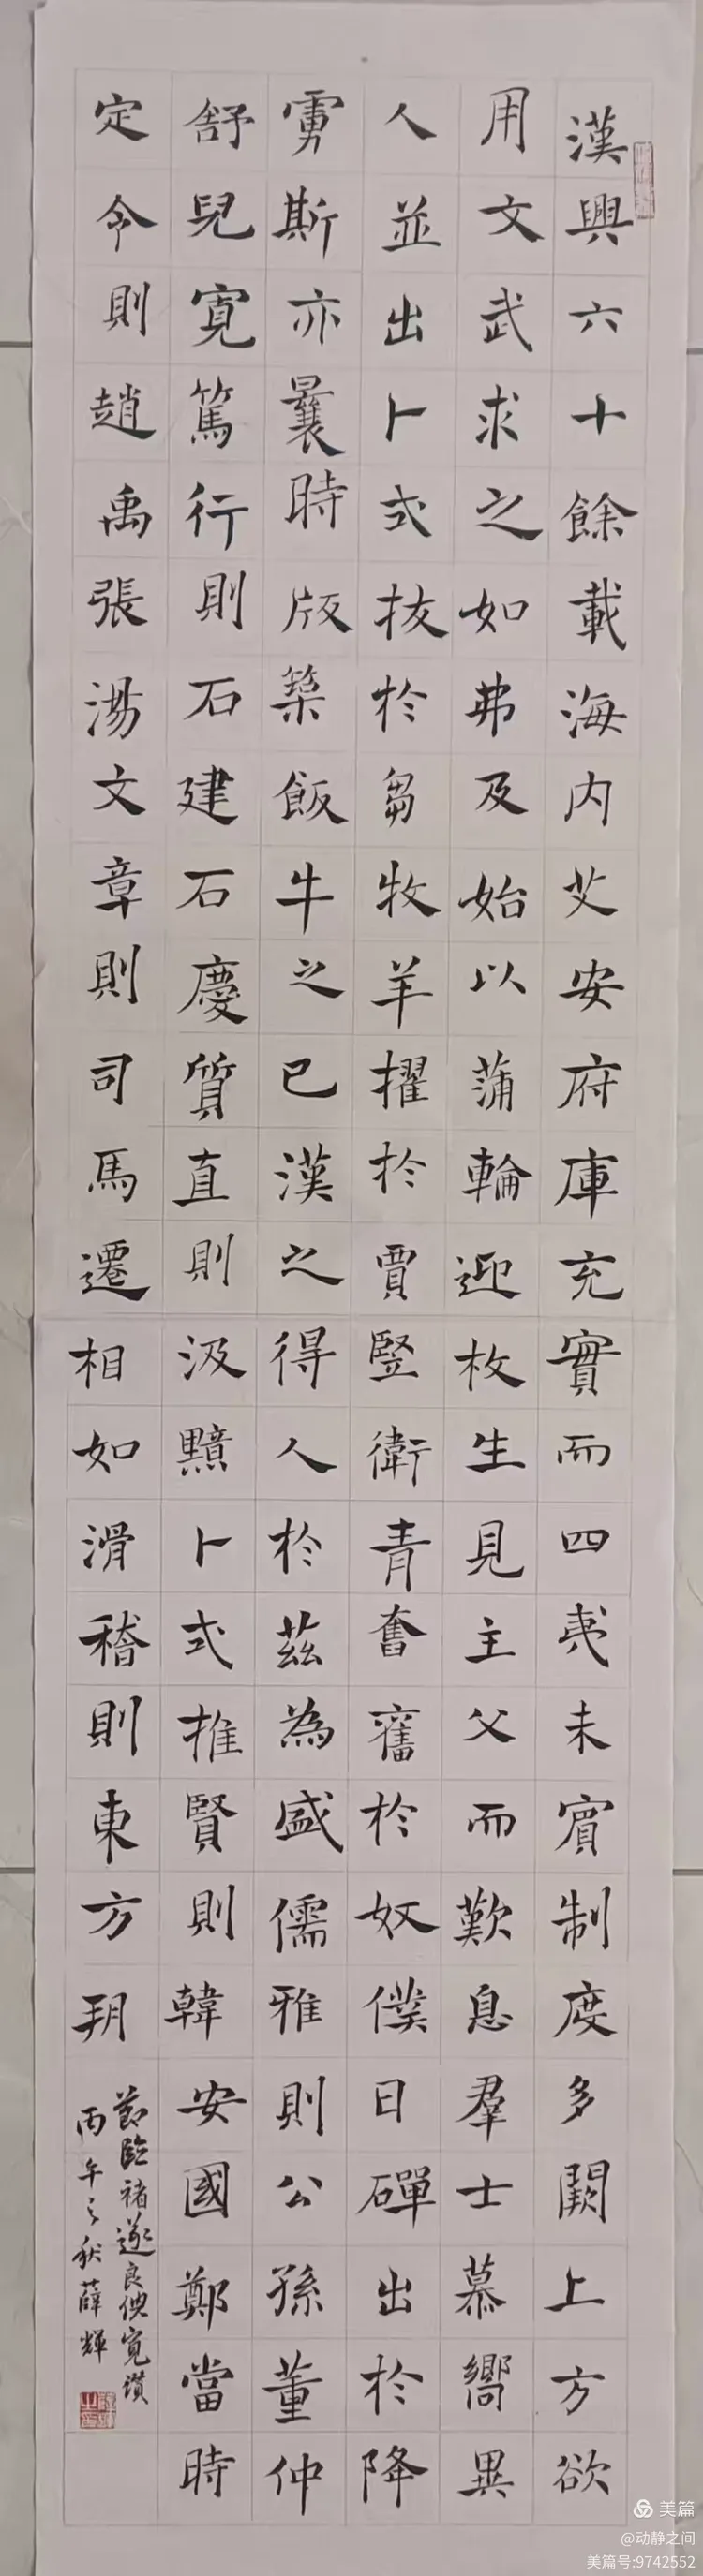 漢興六十餘載海内艾安府庫充實而四夷未賓制度多闕上方欲
用文武求之如弗及始以蒲輪迎枚生見主父而歎息羣士慕嚮異
人並出卜式拔於芻牧羊擢於賈豎衛青奮舊於奴僕日磾出於降
虜斯亦曩時版築飯牛之已漢之得人於茲為盛儒雅則公孫董仲
舒兒寬篤行則石建石慶質直則汲黯卜式推賢則韓安國鄭當時
定令則趙禹張湯文章則司馬遷相如滑稽則東方朔
節臨褚遂良倪寬讚
丙午之秋薛輝
美篇
@动静之间
美篇号:9742552